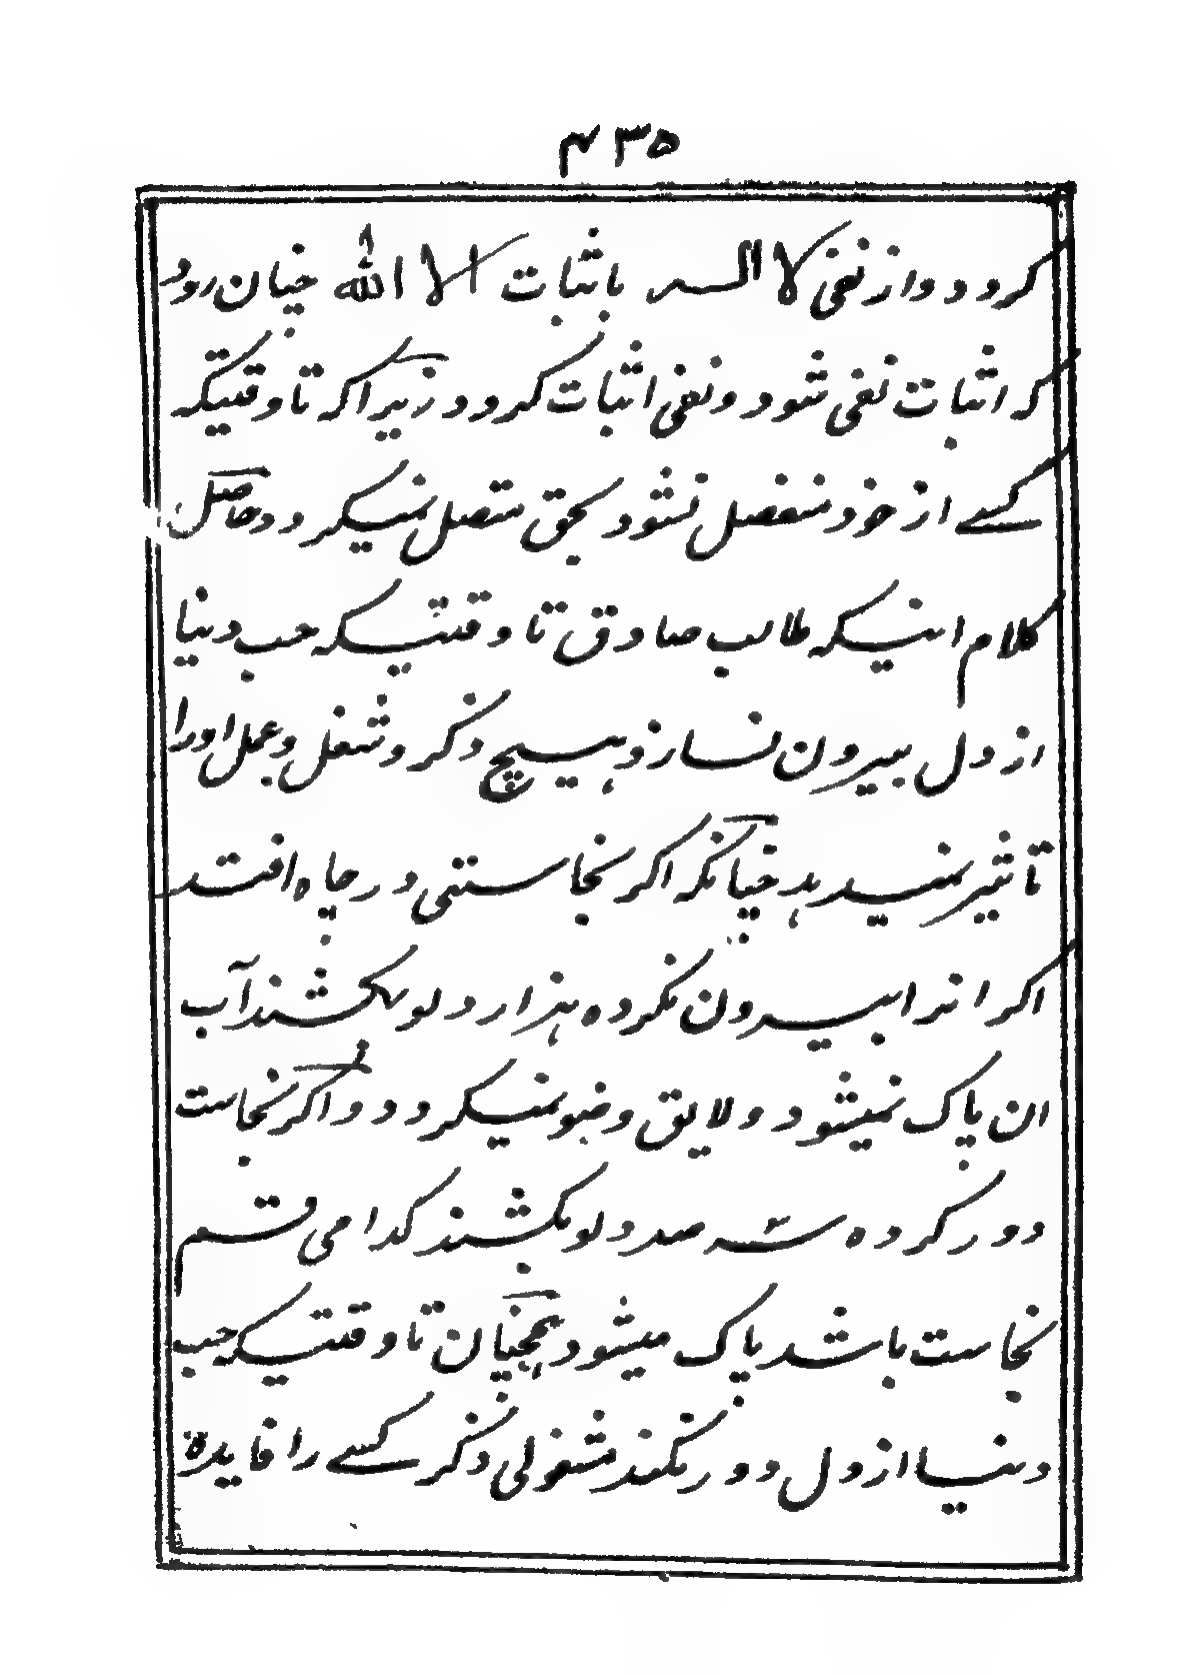 ۴۳۵
کرود واز نفی لا اله باثبات الا الله چنان رود
که اثبات نفی شود ونفی اثبات کرود زیراکه تا وقتیکه
کسے از خود منفصل نشود بحق متصل نمیکردد حاصل
کلام اینکه طالب صادق تا وقتیکه حب دنیا
از دل بیرون نسازد هیچ ذکر و شغل و عمل اورا
تاثیر نمیدهد چنانکه اکر نجاستی در چاه افتد
اکر انرا بیرون نکرده هزار دلو بکشند آب
ان پاک نمیشود و لایق وضو نمیکردد و اکر نجاست
دور کرده سه صد دلو بکشند کدامی قسم
نجاست باشد پاک میشود همچنان تا وقتیکه حب
دنیا از دل دور نکند مشغولی ذکر کسے را فایده